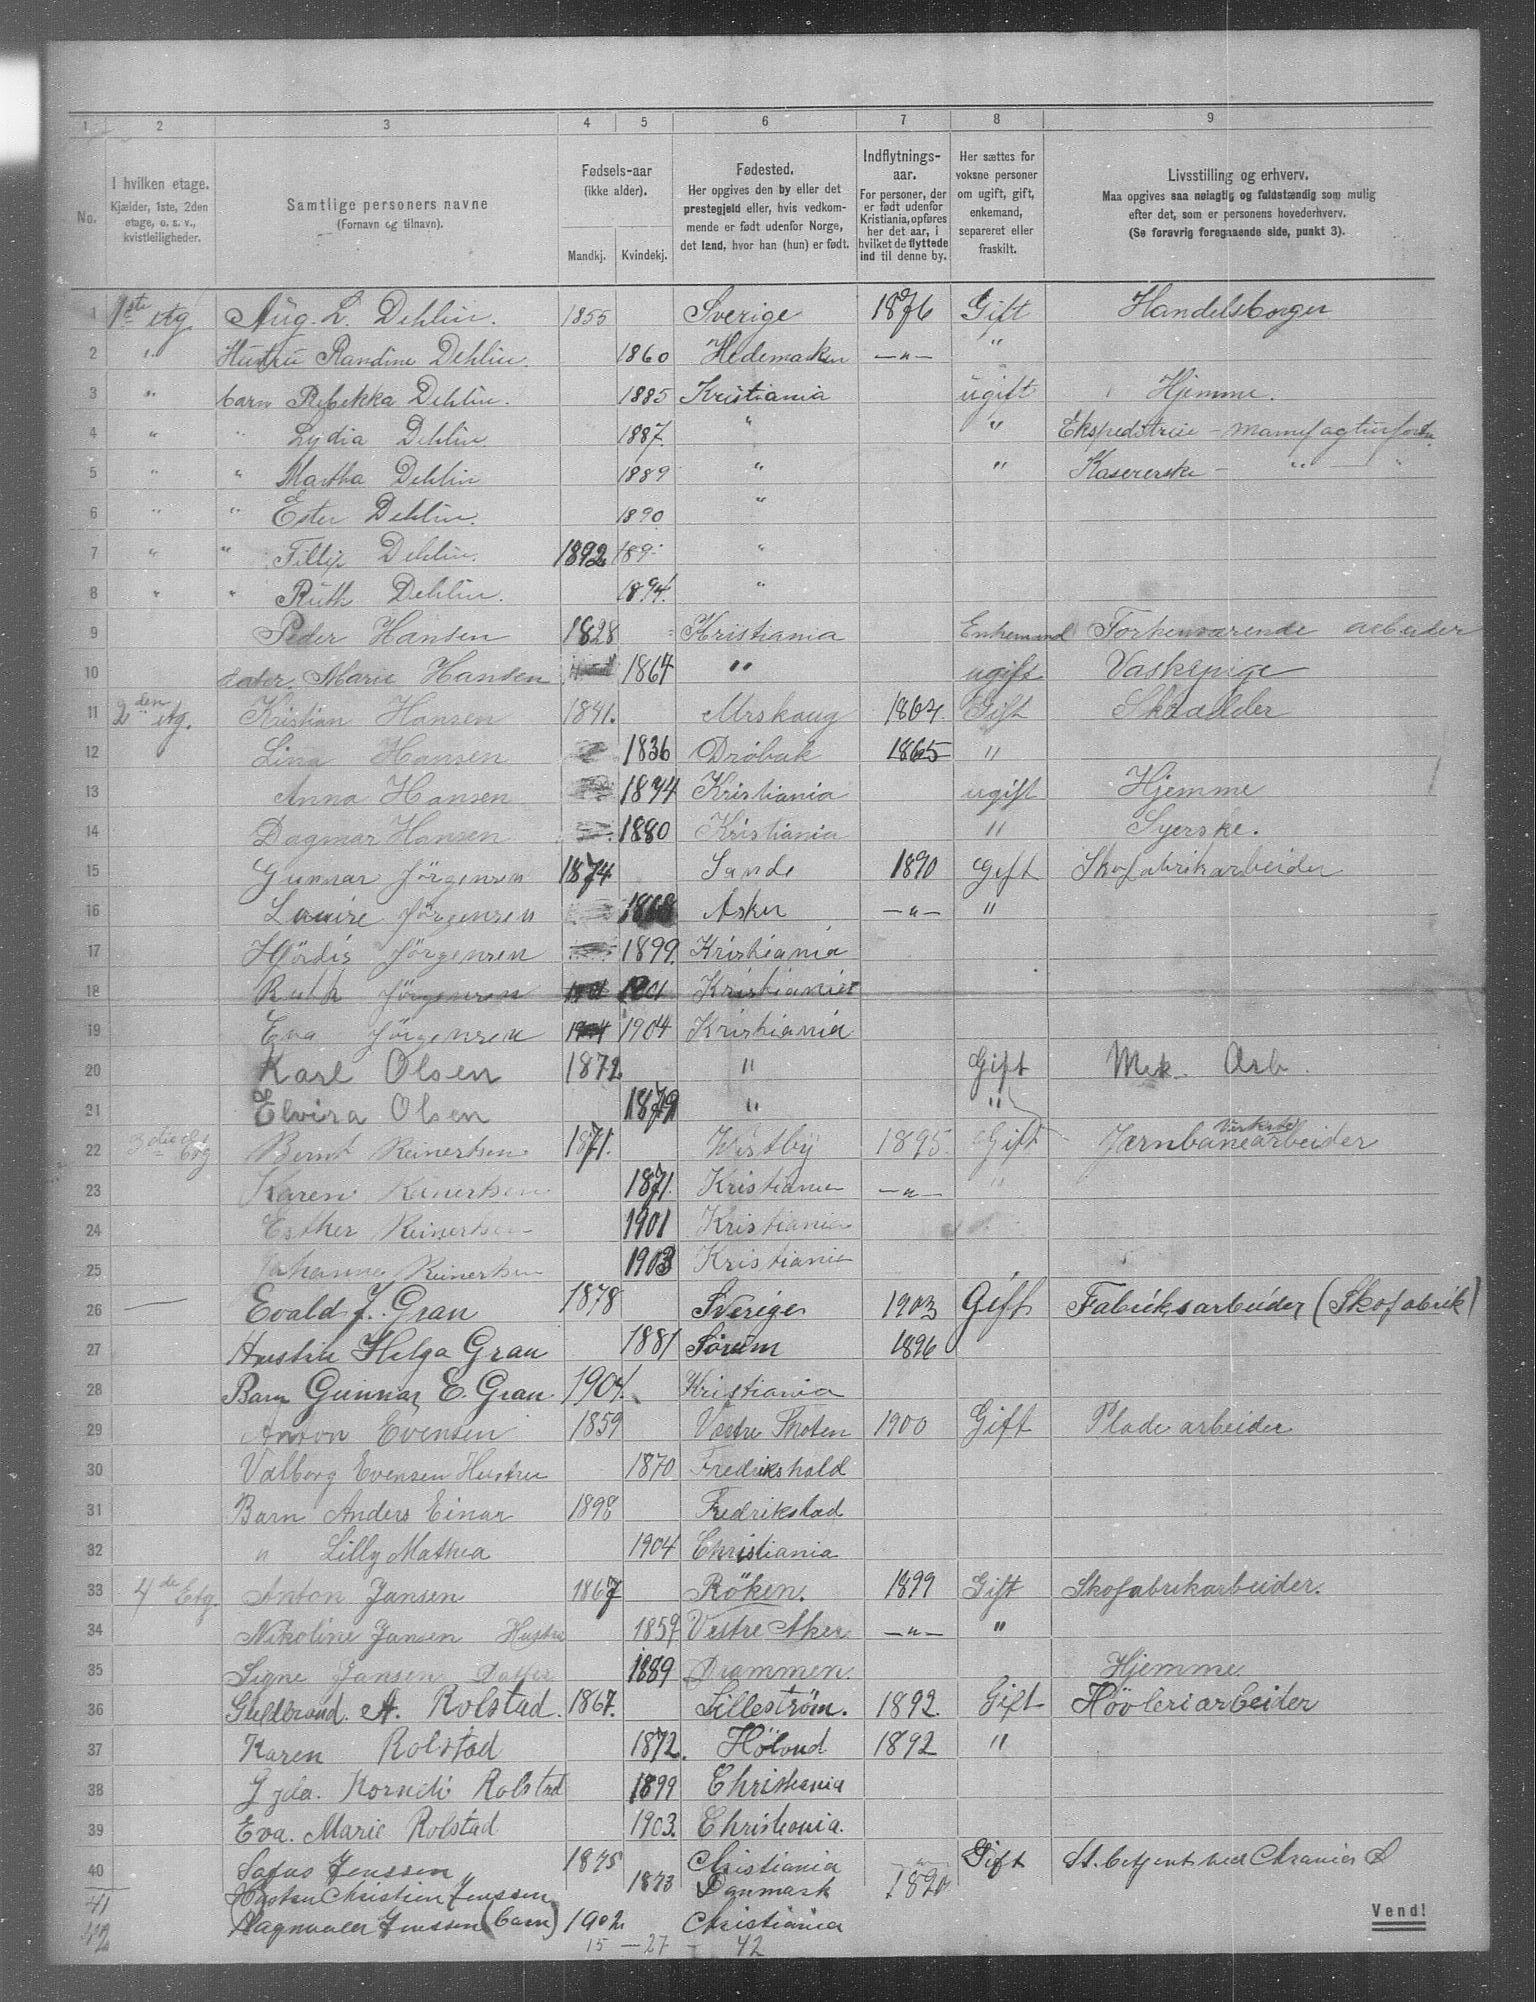 1 2 3 4 5 6 7 8 9
No.
I hvilken etage. Kjælder, 1ste, 2den etage, o. s. v., kvistleiligheder.
Samtlige personers navne (Fornavn og tilnavn).
Fødsels-aar (ikke alder). Mandkj. Kvindekj.
Fødested. Her opgives den by eller det prestegjeld eller, hvis vedkommende er født udenfor Norge, det land, hvor han (hun) er født.
Indflytnings-aar. For personer, der er født udenfor Kristiania, opføres her det aar, i hvilket de flyttede ind til denne by.
Her sættes for voksne personer om ugift, gift, enkemand, separeret eller fraskilt.
Livsstilling og erhverv. Maa opgives saa nøiagtig og fuldstændig som mulig efter det, som er personens hovederhverv. (Se forøvrig foregaaende side, punkt 3).
1 1ste etg. Aug. L. Dehlin. 1855 Sverige 1876 Gift Handelsborger
2 " Hustru Randine Dehlin. 1860 Hedemarken —"— "
3 " barn Rebekka Dehlin. 1885 Kristiania ugift Hjemme.
4 " " Lydia Dehlin 1887. " " Ekspeditrise - manufagturforr.
5 " " Martha Dehlin 1889 " " Kasererske - " "
6 " " Ester Dehlin. 1890 "
7 " " Fillip Dehlin. 1892 189 "
8 " " Ruth Dehlin. 1894. "
9 Peder Hansen 1828 Kristiania Enkemand Forhenværende arbeider
10 dater. Marie Hansen 1864 " ugift Vaskepige
11 2den etg. Kristian Hansen 1841. Urskoug 1864. Gift Skrædder
12 Lina Hansen 1836 Dröbak 1865 "
13 Anna Hansen 1874 Kristiania ugift Hjemme
14 Dagmar Hansen 1880 Kristiania " Syerske.
15 Gunnar Jörgensen 1874 Sande 1890 Gift Skofabrikarbeider
16 Louise Jörgensen 1868 Asker —"— "
17 Hjördis Jörgensen 1899. Kristiania
18 Ruth Jörgensen 1901 Kristiania
19 Eva Jörgensen 1904 1904 Kristiania
20 Karl Olsen 1872 " Gift Mek. Arb.
21 Elvira Olsen 1879 " "
22 3die Etg Bernt Reinertsen 1871. Vestby 1895 Gift Jærnbaneverkstedarbeider
23 Karen Reinertsen 1871. Kristiania —"— "
24 Esther Reinertsen 1901 Kristiania
25 Johanne Reinertsen 1903 Kristiania
26 — Evald J. Gran 1878 Sverige 1903 Gift Fabriksarbeider (Skofabrik)
27 Hustru Helga Gran 1881 Sörum 1896
28 Barn Gunnar E. Gran 1904. Kristiania
29 Anton Evensen 1859 Vestre Thoten 1900 Gift Pladearbeider
30 Valborg Evensen Hustru 1870 Fredrikshald
31 Barn Anders Einar 1898 Fredrikstad
32 " Lilly Mathea 1904 Christiania
33 4de Etg. Anton Jansen 1867 Röken. 1899 Gift Skofabrikarbeider.
34 Nikoline Jansen Hustru 1859 Vestre Aker —"— "
35 Signe Jansen Datter 1889 Drammen. Hjemme
36 Guldbrand. A. Rolstad. 1867. Lilleström. 1892. Gift Hövleriarbeider
37 Karen Rolstad 1872. Höland 1892 "
38 Gyda. Korneli Rolstad 1899 Christiania
39 Eva. Marie Rolstad 1903. Christiania.
40 Sofus Jenssen 1875 Christiania Gift St. betjent ved Chrania
41 Hustru Christien Jenssen 1873 Danmark 1890
42 Magnvaler Jenssen (barn) 1902 Christiania
15 — 27 — 42
Vend!